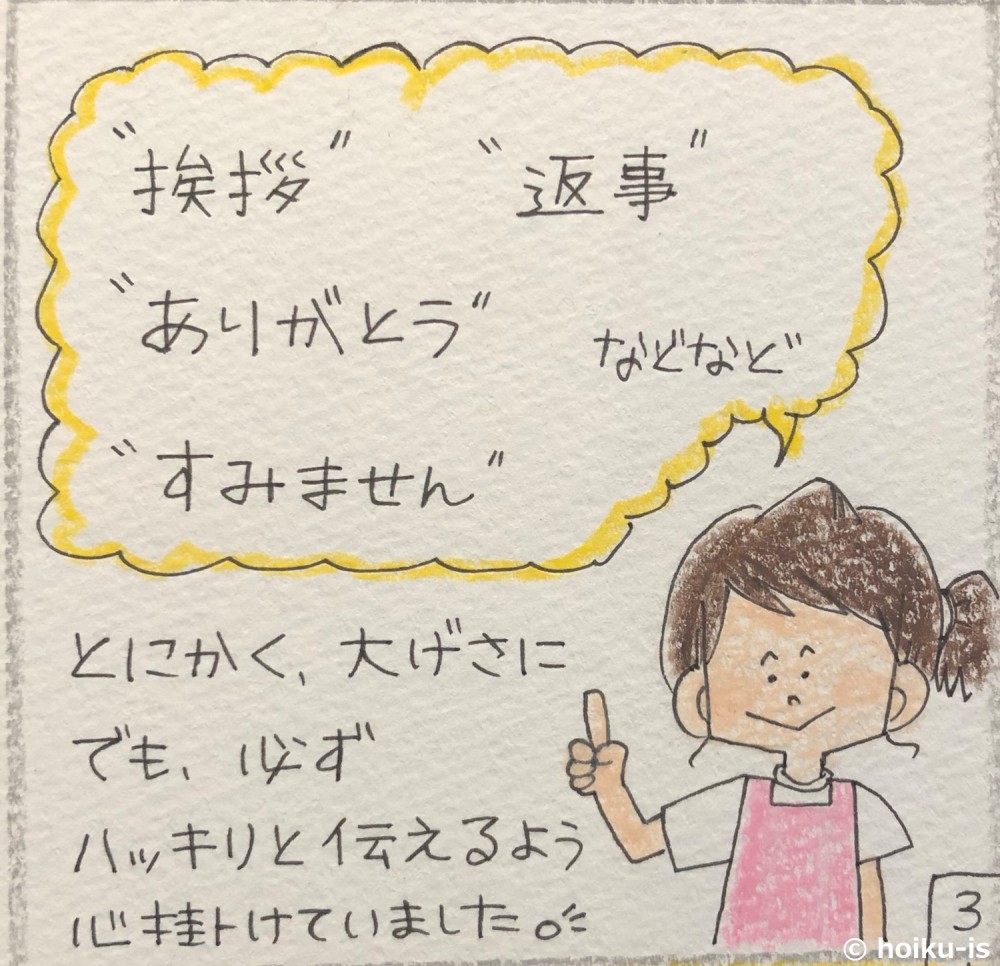 "挨拶" "返事"
"ありがとう"
などなど
"すみません"
とにかく、大げさに
でも、必ず
ハッキリと伝えるよう
心掛けていました。
3
© hoiku-is